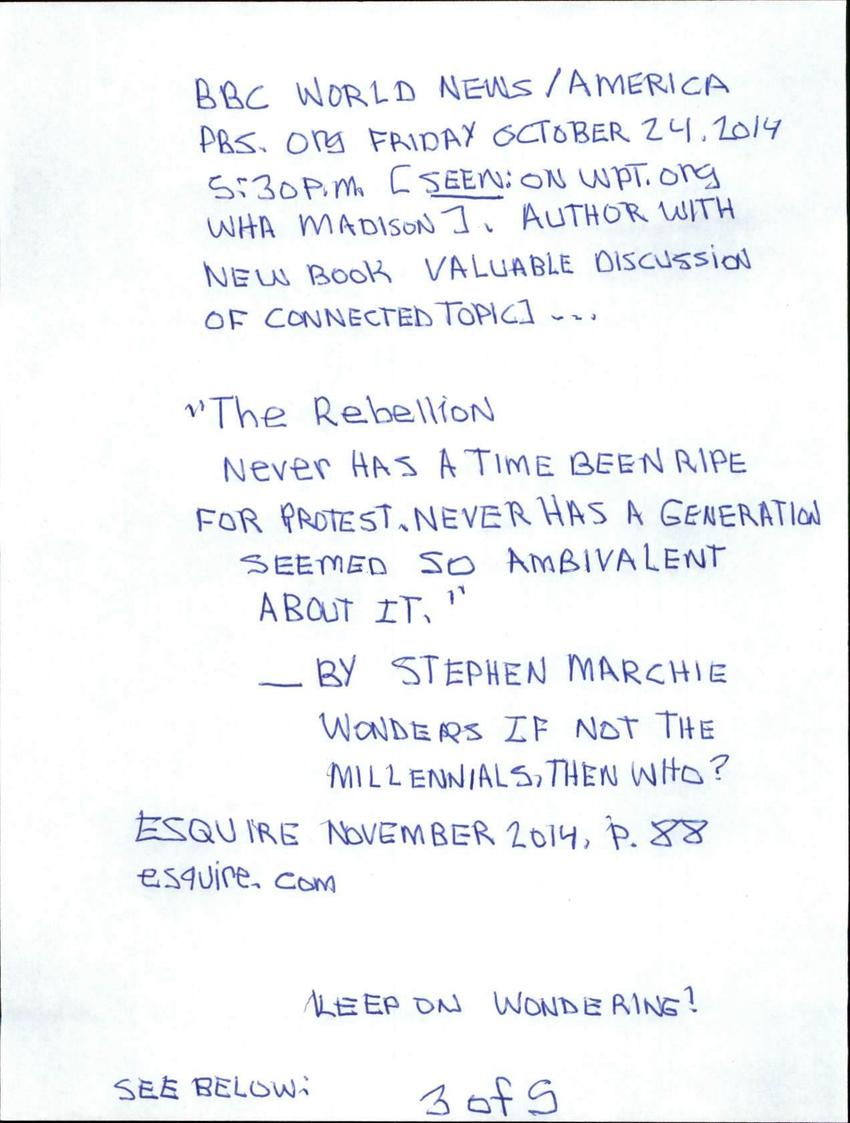 BBC WORLD NEWS/AMERICA
PBS. org FRIDAY OCTOBER 24. 2014
5:30P.M. [SEEN: ON WPT.org
WHA MADISON]. AUTHOR WITH
NEW BOOK VALUABLE DISCUSSION
OF CONNECTED TOPIC] ---.
"The Rebellion
Never HAS A TIME BEEN RIPE
FOR PROTEST. NEVER HAS A GENERATION
SEEMED SO AMBIVALENT
ABOUT IT."
— BY STEPHEN MARCHIE
WONDERS IF NOT THE
MILLENNIALS, THEN WHO?
ESQUIRE NOVEMBER 2014, P. 88
esquire. com
KEEP ON WONDERING!
SEE BELOW:
3 of 5